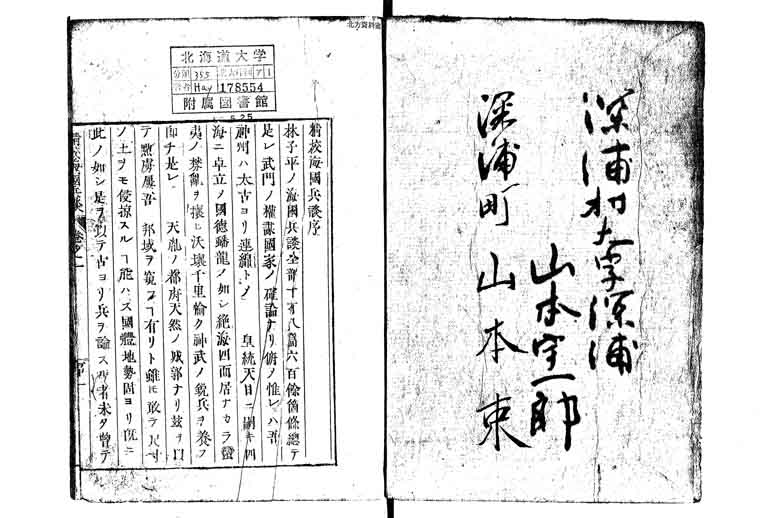 北方資料室
深浦村大字深浦
山本宝一郎
深浦町 山本東
北海道大学
分類 355
Hay 178554
附属図書館
精校海國兵談序
林子平ノ海國兵談全部十有八篇六百餘箇條總テ
是レ武門ノ權謀國家ノ確論ナリ俯ノ惟レハ吾
神州ハ太古ヨリ連綿トノ 皇統天日ニ嗣キ四
海ニ卓立ノ國德蟠龍ノ如シ絶海四面居ナカラ蠻
夷ノ 亂ヲ攘ヒ沃壤千里愉ク神武ノ貔兵ヲ養フ
即チ是レ 天 ノ都府天然ノ城郭ナリ玆ヲ以
テ黠虜屢吾 邦域ヲ窺フヿ有リト雖モ敢テ尺寸
ノ土ヲモ侵掠スルヿ能ハス國體地勢固ヨリ既ニ
此ノ如シ是ヲ以テ古ヨリ兵ヲ論ス 者未タ曾テ
精校海國兵談 卷之一